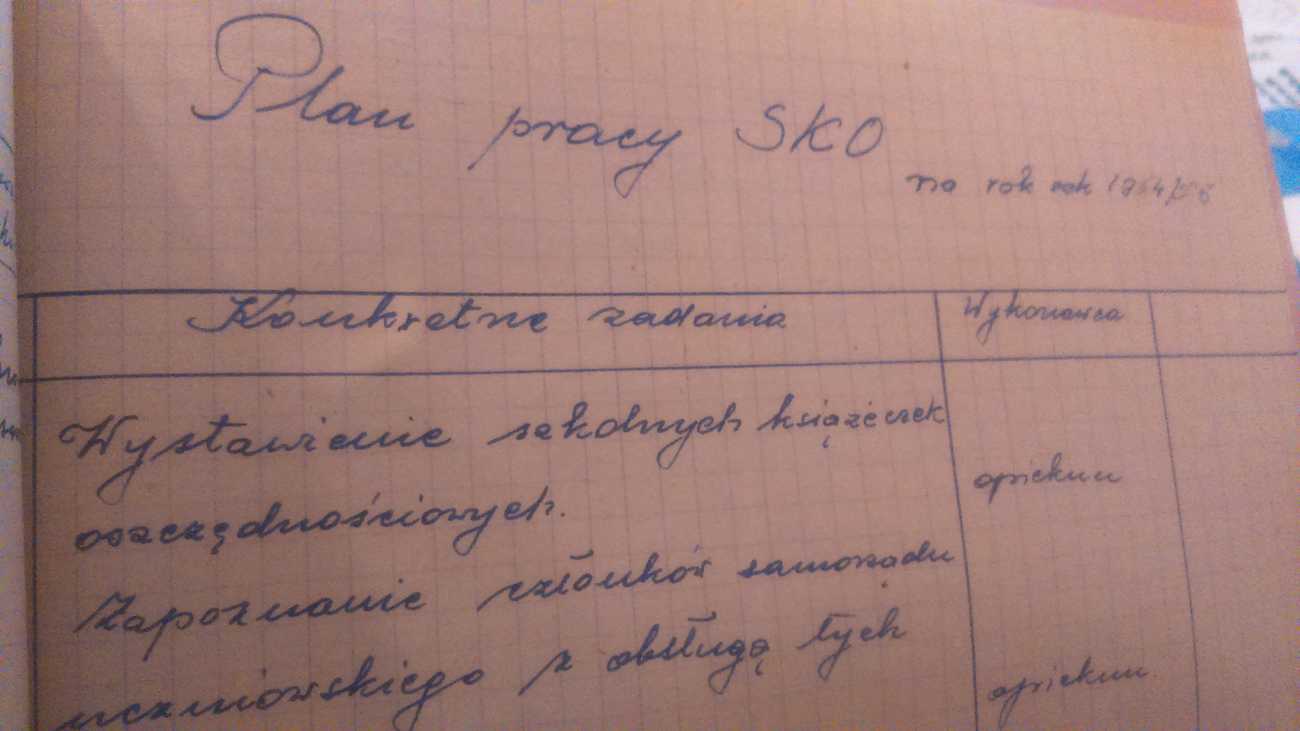 Plan pracy SKO
na rok szk
Konkretne zadania Wykonawca
Wystawienie szkolnych książeczek
oszczędnościowych. opiekun
Zapoznanie członków samorządu
uczniowskiego z obsługą tych opiekun